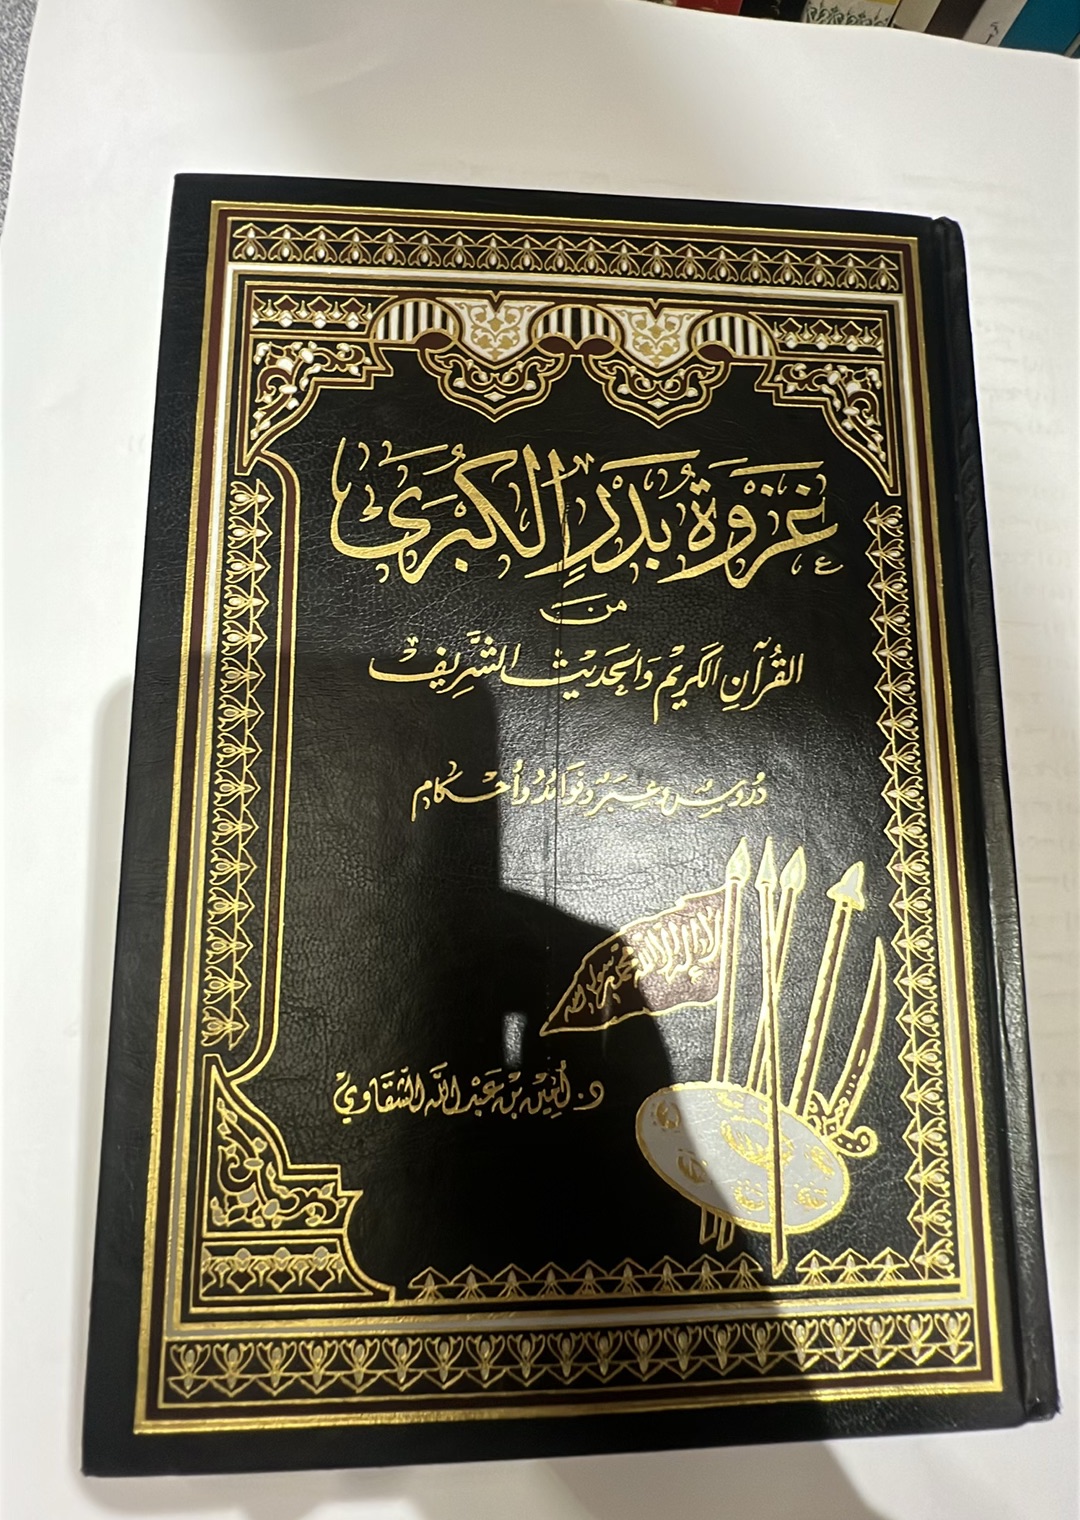 غزوة بدر الكبرى
من
القرآن الكريم والحديث الشريف
دروس وعبر وفوائد وأحكام
لا إله إلا الله محمد رسول الله
د. أمين بن عبد الله الشقاوي